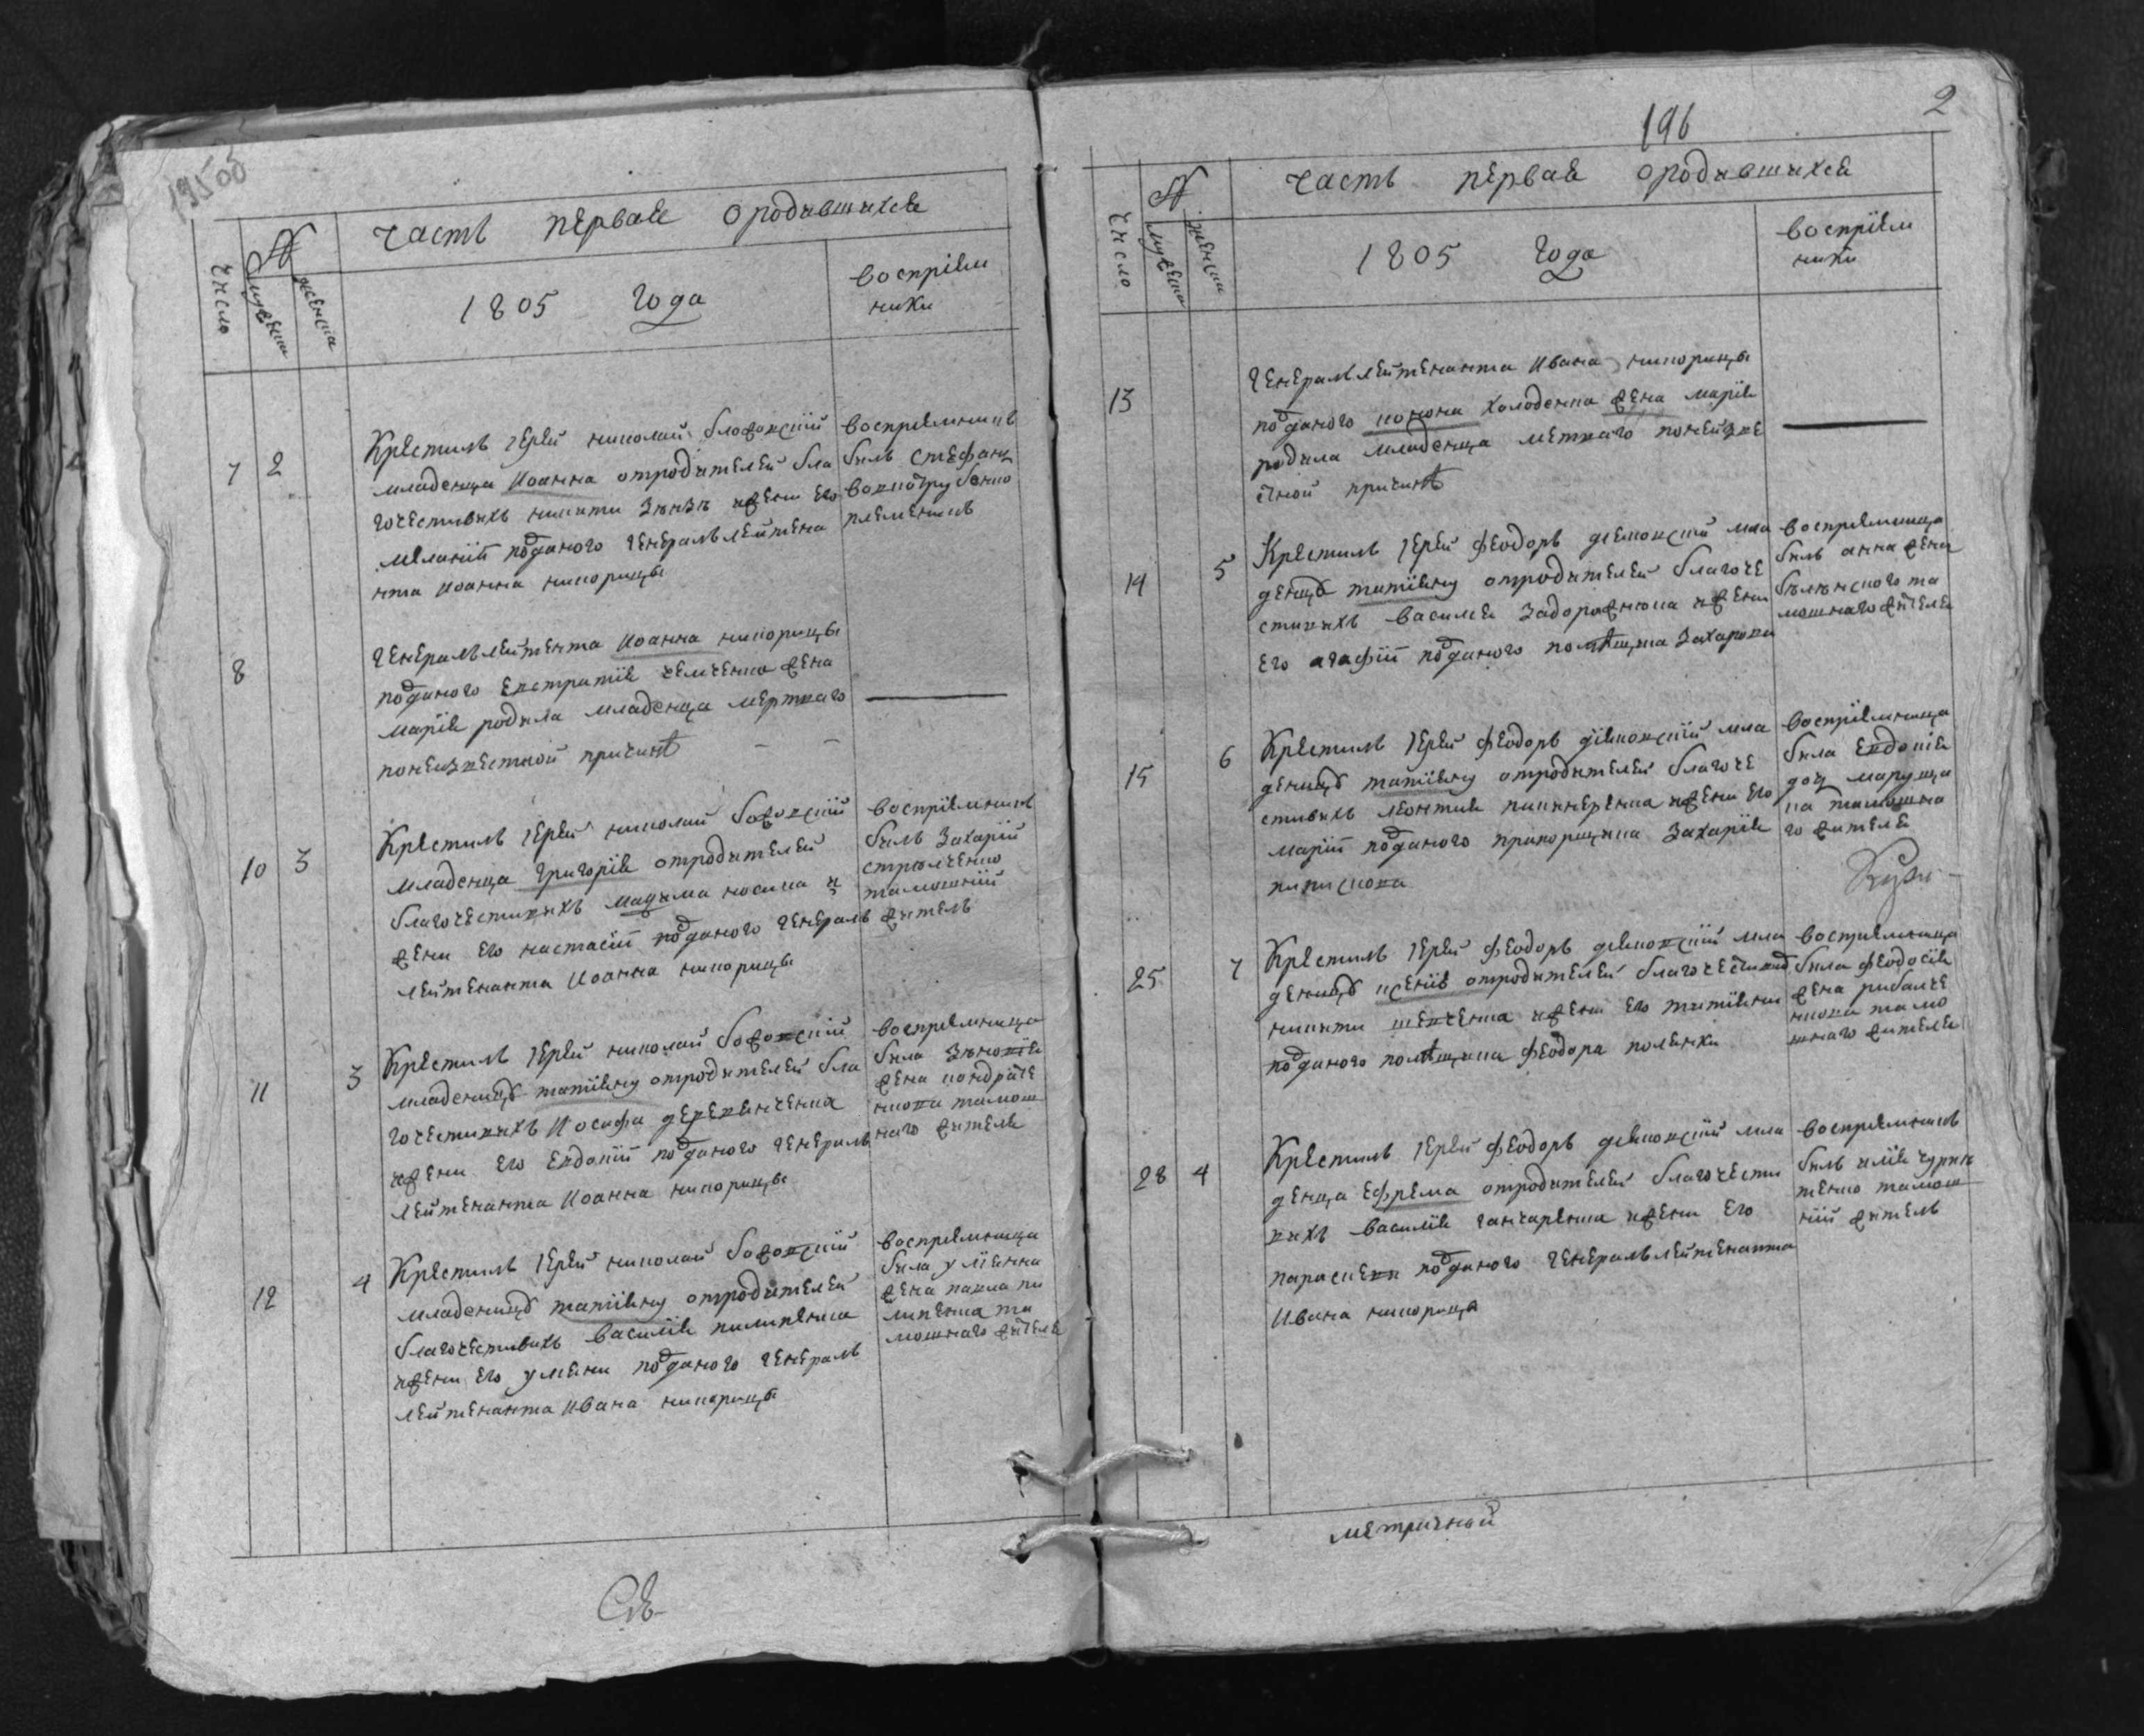 195об
часть первая о родившихся
№
число
мужеска
женска
1805 года
восприем
ники
7 2
Крестилъ іерей николай божовскій
младенца иоанна отродителей бла
гочестивихъ никити зѣнзѣ ижени его
меланіи подданого генералълейтена
нта иоанна никорици
восприемникъ
билъ стефанъ
племеникъ
8
генералълейтента иоанна никорици
подданого евстратія чемченка жена
марія родила младенца мертваго
понеизвестной причинѣ
10 3
Крестилъ іерей николай божовскій
младенца григорія отродителей
благочестивихъ мадима носика и
жени его настасіи подданого генералъ
лейтенанта иоанна никорици
восприемникъ
билъ захарій
стрѣлченко
тамошній
житель
11 3
Крестилъ іерей николай божовскій
младеницѣ татіяну отродителей бла
гочестивихъ иосифа деревянченка
ижени его евдокіи подданого генералъ
лейтенанта иоанна никорици
восприемница
била зѣновія
жена кондратѣ
нкова тамош
наго жителя
12 4
Крестилъ іерей николай божовскій
младеницѣ татіяну отродителей
благочестивихъ василія пилипенка
ижени его уляни подданого генералъ
лейтенанта ивана никорици
восприемница
била уліянна
жена павла пи
липенка та
мошнаго жителя
196
2
часть первая о родившихся
№
число
мужеска
женска
1805 года
восприем
ники
13
генералълейтенанта ивана никорици
подданого конона холоденка жена марія
родила младенца метваго понеизве
стной причинѣ
14 5
Крестилъ іерей феодоръ демковскій мла
деницѣ татіяну отродителей благоче
стивихъ василія задорожнока ижени
его агафіи подданого помѣщика захарова
восприемница
билъ анна жена
бѣлѣнского та
мошнаго жителя
15 6
Крестилъ іерей феодоръ дѣмковскій мла
деницѣ татіяну отродителей благоче
стивихъ леонтія кишнеренка ижени его
маріи подданого прапорщика захарія
восприемница
била евдокія
дощ марущи
на тамошна
го жителя
25 7
Крестилъ іерей феодоръ дѣмковскій мла
деницѣ ксенія отродителей благочестивих
никити шевченка ижени его татіяни
подданого помѣщика феодора поленки
восприемница
била феодосія
жена рибалче
нкова тамо
шнаго жителя
28 4
Крестилъ іерей феодоръ дѣмковскій мла
денца ефрема отродителей благочести
вихъ василія ганчаренка ижени его
параскеви подданого генералълейтенанта
ивана никорици
восприемникъ
билъ илія чурик
тенко тамош
ній житель
метричной